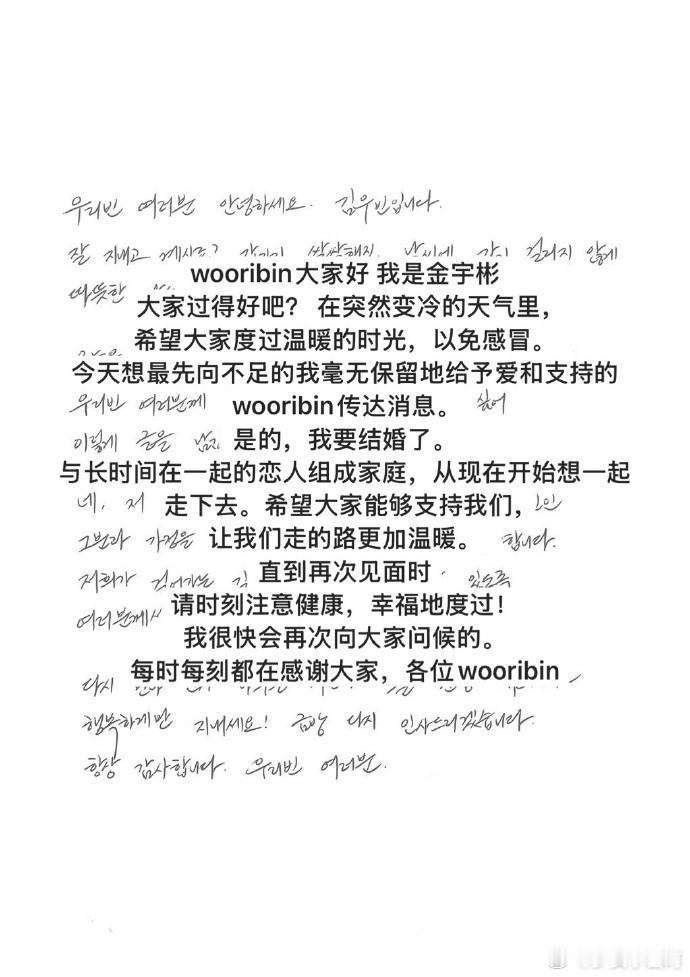 우리빈 여러분 안녕하세요. 김우빈입니다.
잘 지내고 계시죠? 갑자기 쌀쌀해진 날씨에 감기 걸리지 않게
wooribin大家好 我是金宇彬
따뜻한
大家过得好吧? 在突然变冷的天气里,
希望大家度过温暖的时光，以免感冒。
今天想最先向不足的我毫无保留地给予爱和支持的
우리빈 여러분께 wooribin传达消息。 싶어
이렇게 글을 남 是的，我要结婚了。
与长时间在一起的恋人组成家庭，从现在开始想一起
네, 저 走下去。希望大家能够支持我们,
그분과 가정을 让我们走的路更加温暖。 합니다.
저희가 걸어가는 길 直到再次见面时 있도록
여러분께서 请时刻注意健康，幸福地度过!
我很快会再次向大家问候的。
다시 每时每刻都在感谢大家，各位wooribin
행복하게만 지내세요! 금방 다시 인사드리겠습니다.
항상 감사합니다. 우리빈 여러분.